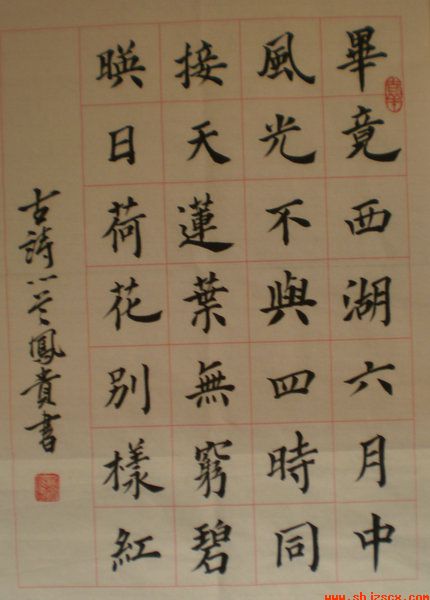 畢竟西湖六月中
風光不與四時同
接天蓮葉無窮碧
暎日荷花別樣紅
古詩 鳳貴書
www.shizscx.com